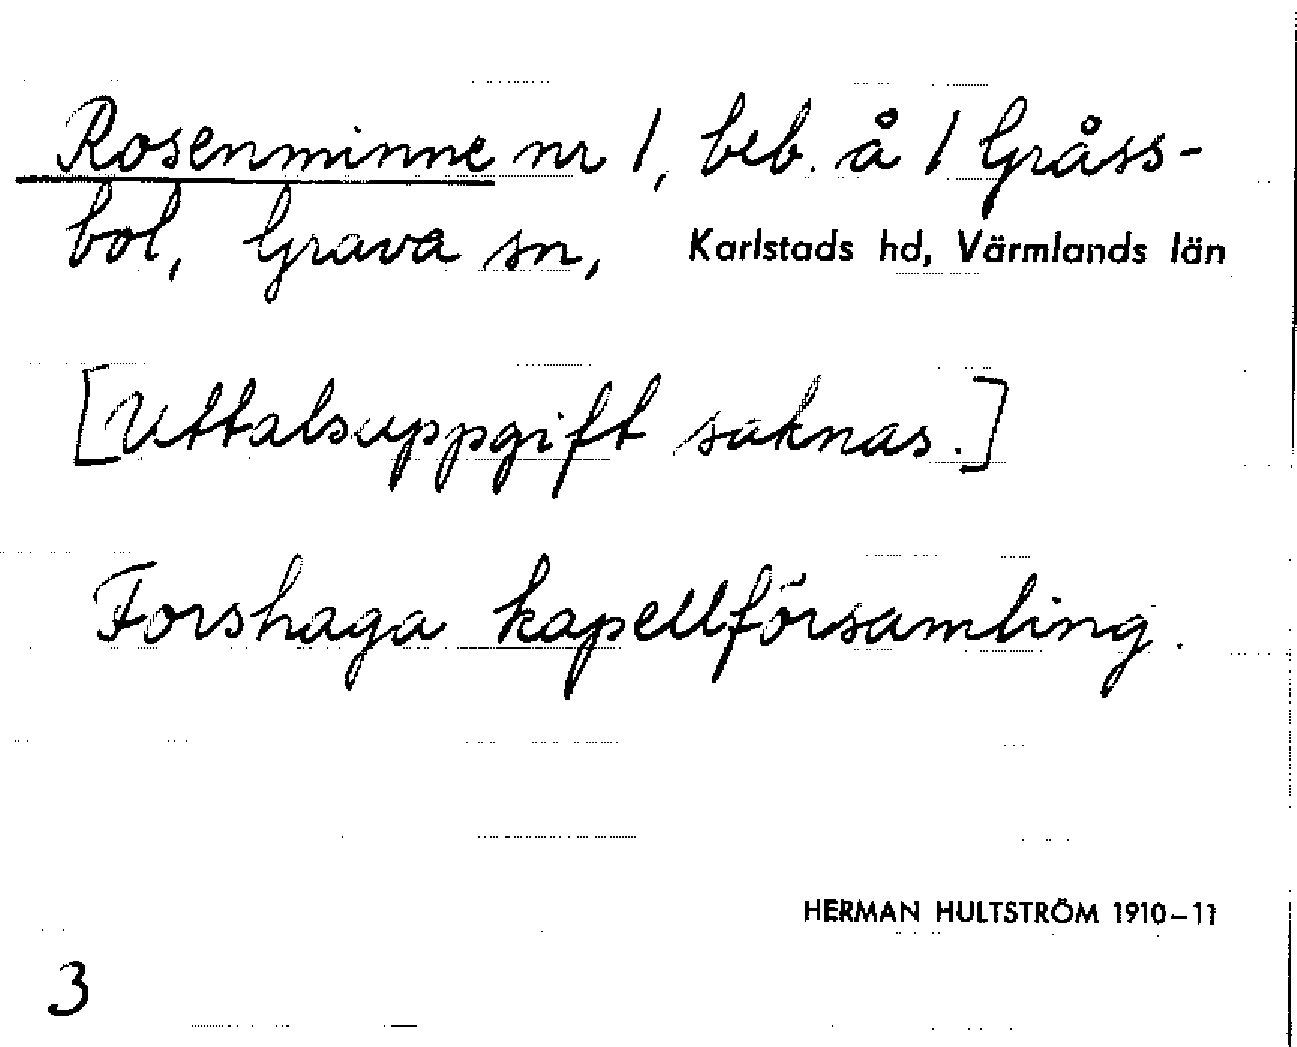 Rosenminne nr 1, beb. å 1 Gråss-
bol, Grava sn, Karlstads hd, Värmlands län
[Uttalsuppgift saknas.]
Forshaga kapellförsamling.
HERMAN HULTSTRÖM 1910-11
3